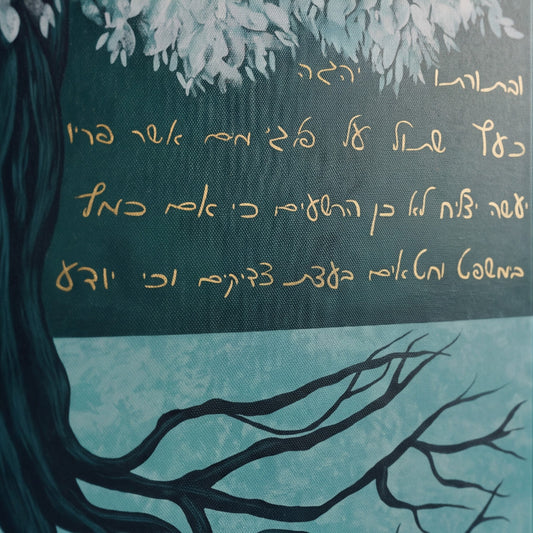 ובתורתו יהגה
כעץ שתול על פלגי מים אשר פריו
יעשה יצליח לא כן הרשעים כי אם כמץ
במשפט וחטאים בעצת צדיקים וכי יודע